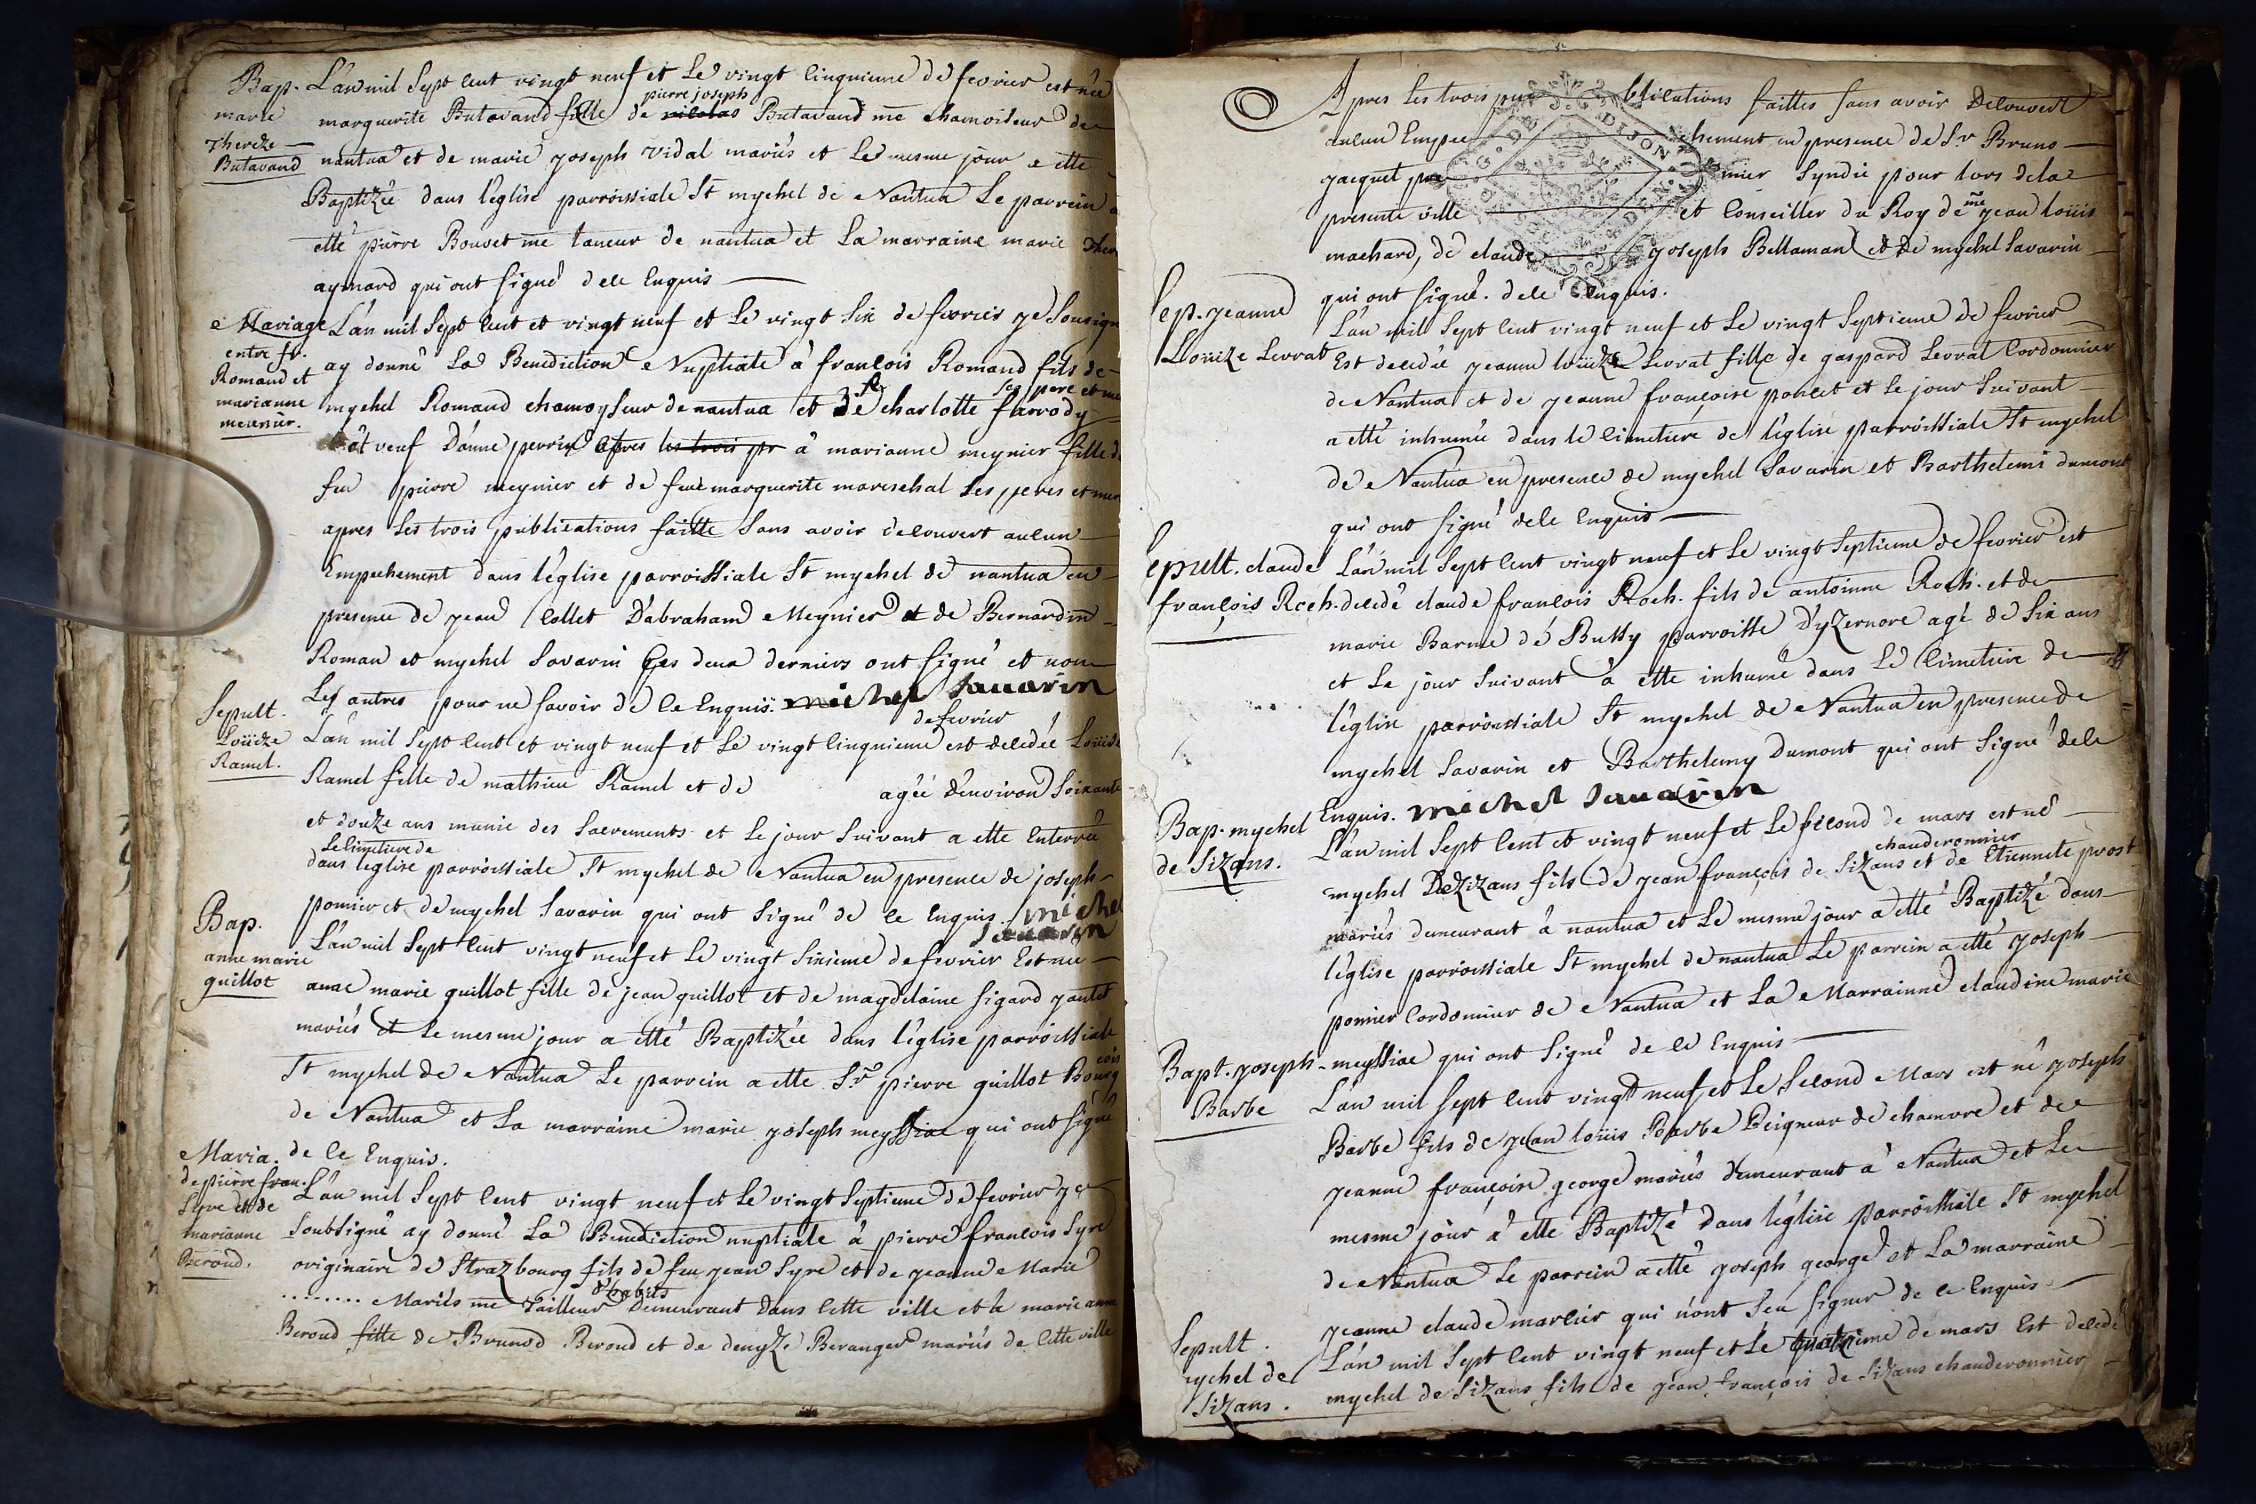 Bap. marie Thereze Butavand
L'an mil Sept cent vingt neuf et Le vingt cinquieme de fevrier est née
marguerite Butavand fille de pierre joseph Butavand me chamoiseur de
nantua et de marie joseph Vidal mariés et Le mesme jour a etté
Baptizée dans l'eglise parroissiale St mychel de Nantua Le parrein a
etté pierre Bouvet me taneur de nantua et La marraine marie Ther
aymard qui ont signé de ce Enquis
Mariage entre fr. Romand et marianne meynier.
L'an mil Sept cent et vingt neuf et Le vingt Six de fevrier je Sousign
ay donné La Benediction Nuptiale à francois Romand fils de
mychel Romand chamoyseur de nantua et de charlotte farrody ses pere et me
et veuf D'anne perrin apres les trois pr à marianne meynier fille de
feu pierre meynier et de feue marguerite mareschal Ses peres et mer
apres Les trois publications faitte Sans avoir decouvert aucun
Empechement dans l'eglise parroissiale St mychel de nantua en
presence de jean Collet D'abraham Meynier et de Bernardin
Roman et mychel Savarin Ces deux derniers ont signé et non
Les autres pour ne savoir de ce Enquis. michel Sauarin
Sepult. Loüize Ramel.
L'an mil Sept cent et vingt neuf et Le vingt cinquieme de fevrier est decedée Loüize
Ramel fille de mathieu Ramel et de agée d'environ Soixante
et douze ans munie des Sacrements et Le jour Suivant a etté Enterrée
dans Le cimetiere de l'eglise parroissiale St mychel de Nantua en presence de joseph
ponnier et de mychel Savarin qui ont Signé de ce Enquis. michel
Sauarin
Bap. anne marie guillot
L'an mil Sept cent vingt neuf et Le vingt Sixieme de fevrier Est née
anne marie guillot fille de jean guillot et de magdelaine figard
mariés et Le mesme jour a etté Baptizée dans l'eglise parroissiale
St mychel de Nantua Le parrein a etté Sr pierre guillot Bourgeois
de Nantua et La marraine marie joseph meyssiac qui ont signé
de ce Enquis.
Maria. de pierre fran. Syre et de marianne Beroud.
L'an mil Sept cent vingt neuf et Le vingt Septieme de fevrier je
Soubsigné ay donné La Benediction nuptiale à pierre francois Syre
originaire de Strazbourg fils de feu jean Syre et de jeanne Marie
........ Mariés me tailleur d'habits Demeurant dans Cette ville et à marie anne
Beroud fille de Brunod Beroud et de denyze Beranger mariés de Cette ville
Apres Les trois publications faittes Sans avoir Decouvert
aucun Empechement en presence de Sr Bruno
jacquet premier Syndic pour lors de la
presente ville et Conseiller du Roy de me jean loüis
machard, de claude joseph Bellaman et de mychel Savarin
qui ont signé. de ce Enquis.
Sep. jeanne Loüize Levrat
L'an mil Sept cent vingt neuf et Le vingt Septieme de fevrier
Est decedée jeanne loüize Levrat fille de gaspard Levrat Cordonnier
de Nantua et de jeanne françoise poncet et Le jour Suivant
a etté inhumée dans Le Cimetiere de l'eglise parroissiale St mychel
de Nantua en presence de mychel Savarin et Barthelemi dumont
qui ont signé de ce Enquis
Sepult. claude françois Roch.
L'an mil Sept cent vingt neuf et Le vingt Septieme de fevrier est
decedé claude francois Roch. fils de antoinne Roch. et de
marie Barme de Bussy parroisse d'yzernore agé de Six ans
et Le jour Suivant à etté inhumé dans Le Cimetiere de
l'eglise parroissiale St mychel de Nantua en presence de
mychel Savarin et Barthelemy Dumont qui ont Signé de ce
Enquis. michel Sauarin
Bap. mychel de Sizans.
L'an mil Sept Cent et vingt neuf et Le Second de mars est né
mychel Dezizans fils de jean françois de Sizans chauderonnier et de Etiennete prost
mariés demeurant à nantua et Le mesme jour a etté Baptizé dans
l'eglise parroissiale St mychel de nantua Le parrein a etté joseph
ponnier Cordonnier de Nantua et La Marrainne claudine marie
meyssiac qui ont Signé de ce Enquis
Bapt. joseph Barbe
L'an mil Sept cent vingt neuf et Le Second Mars est né joseph
Barbe fils de jean loüis Barbe Peigneur de chanvre et de
jeanne françoise george mariés demeurant à Nantua et Le
mesme jour à etté Baptizé dans l'eglise parroissiale St mychel
de Nantua Le parrein a etté joseph george et La marraine
jeanne claude marlier qui n'ont Sçu signer de ce Enquis
Sepult. mychel de Sizans.
L'an mil Sept cent vingt neuf et Le quatrieme de mars Est decedé
mychel de Sizans fils de jean françois de Sizans chauderonnier